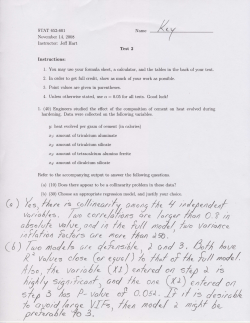 STAT 462-801
Name Key
November 14, 2008
Instructor: Jeff Hart
Test 2
Instructions:
1. You may use your formula sheet, a calculator, and the tables in the back of your text.
2. In order to get full credit, show as much of your work as possible.
3. Point values are given in parentheses.
4. Unless otherwise stated, use α = 0.05 for all tests. Good luck!
1. (40) Engineers studied the effect of the composition of cement on heat evolved during
hardening. Data were collected on the following variables.
y: heat evolved per gram of cement (in calories)
x₁: amount of tricalcium aluminate
x₂: amount of tricalcium silicate
x₃: amount of tetracalcium alumino ferrite
x₄: amount of dicalcium silicate
Refer to the accompanying output to answer the following questions.
(a) (10) Does there appear to be a collinearity problem in these data?
(b) (30) Choose an appropriate regression model, and justify your choice.
(a) Yes, there is collinearity among the 4 independent
variables. Two correlations are larger than 0.8 in
absolute value, and in the full model, two variance
inflation factors are more than 250.
(b) Two models are defensible, 2 and 3. Both have
R² values close (or equal) to that of the full model.
Also, the variable (X1) entered on step 2 is
highly significant, and the one (X2) entered on
step 3 has P-value of 0.052. If it is desirable
to avoid large VIFs, then model 2 might be
preferable to 3.